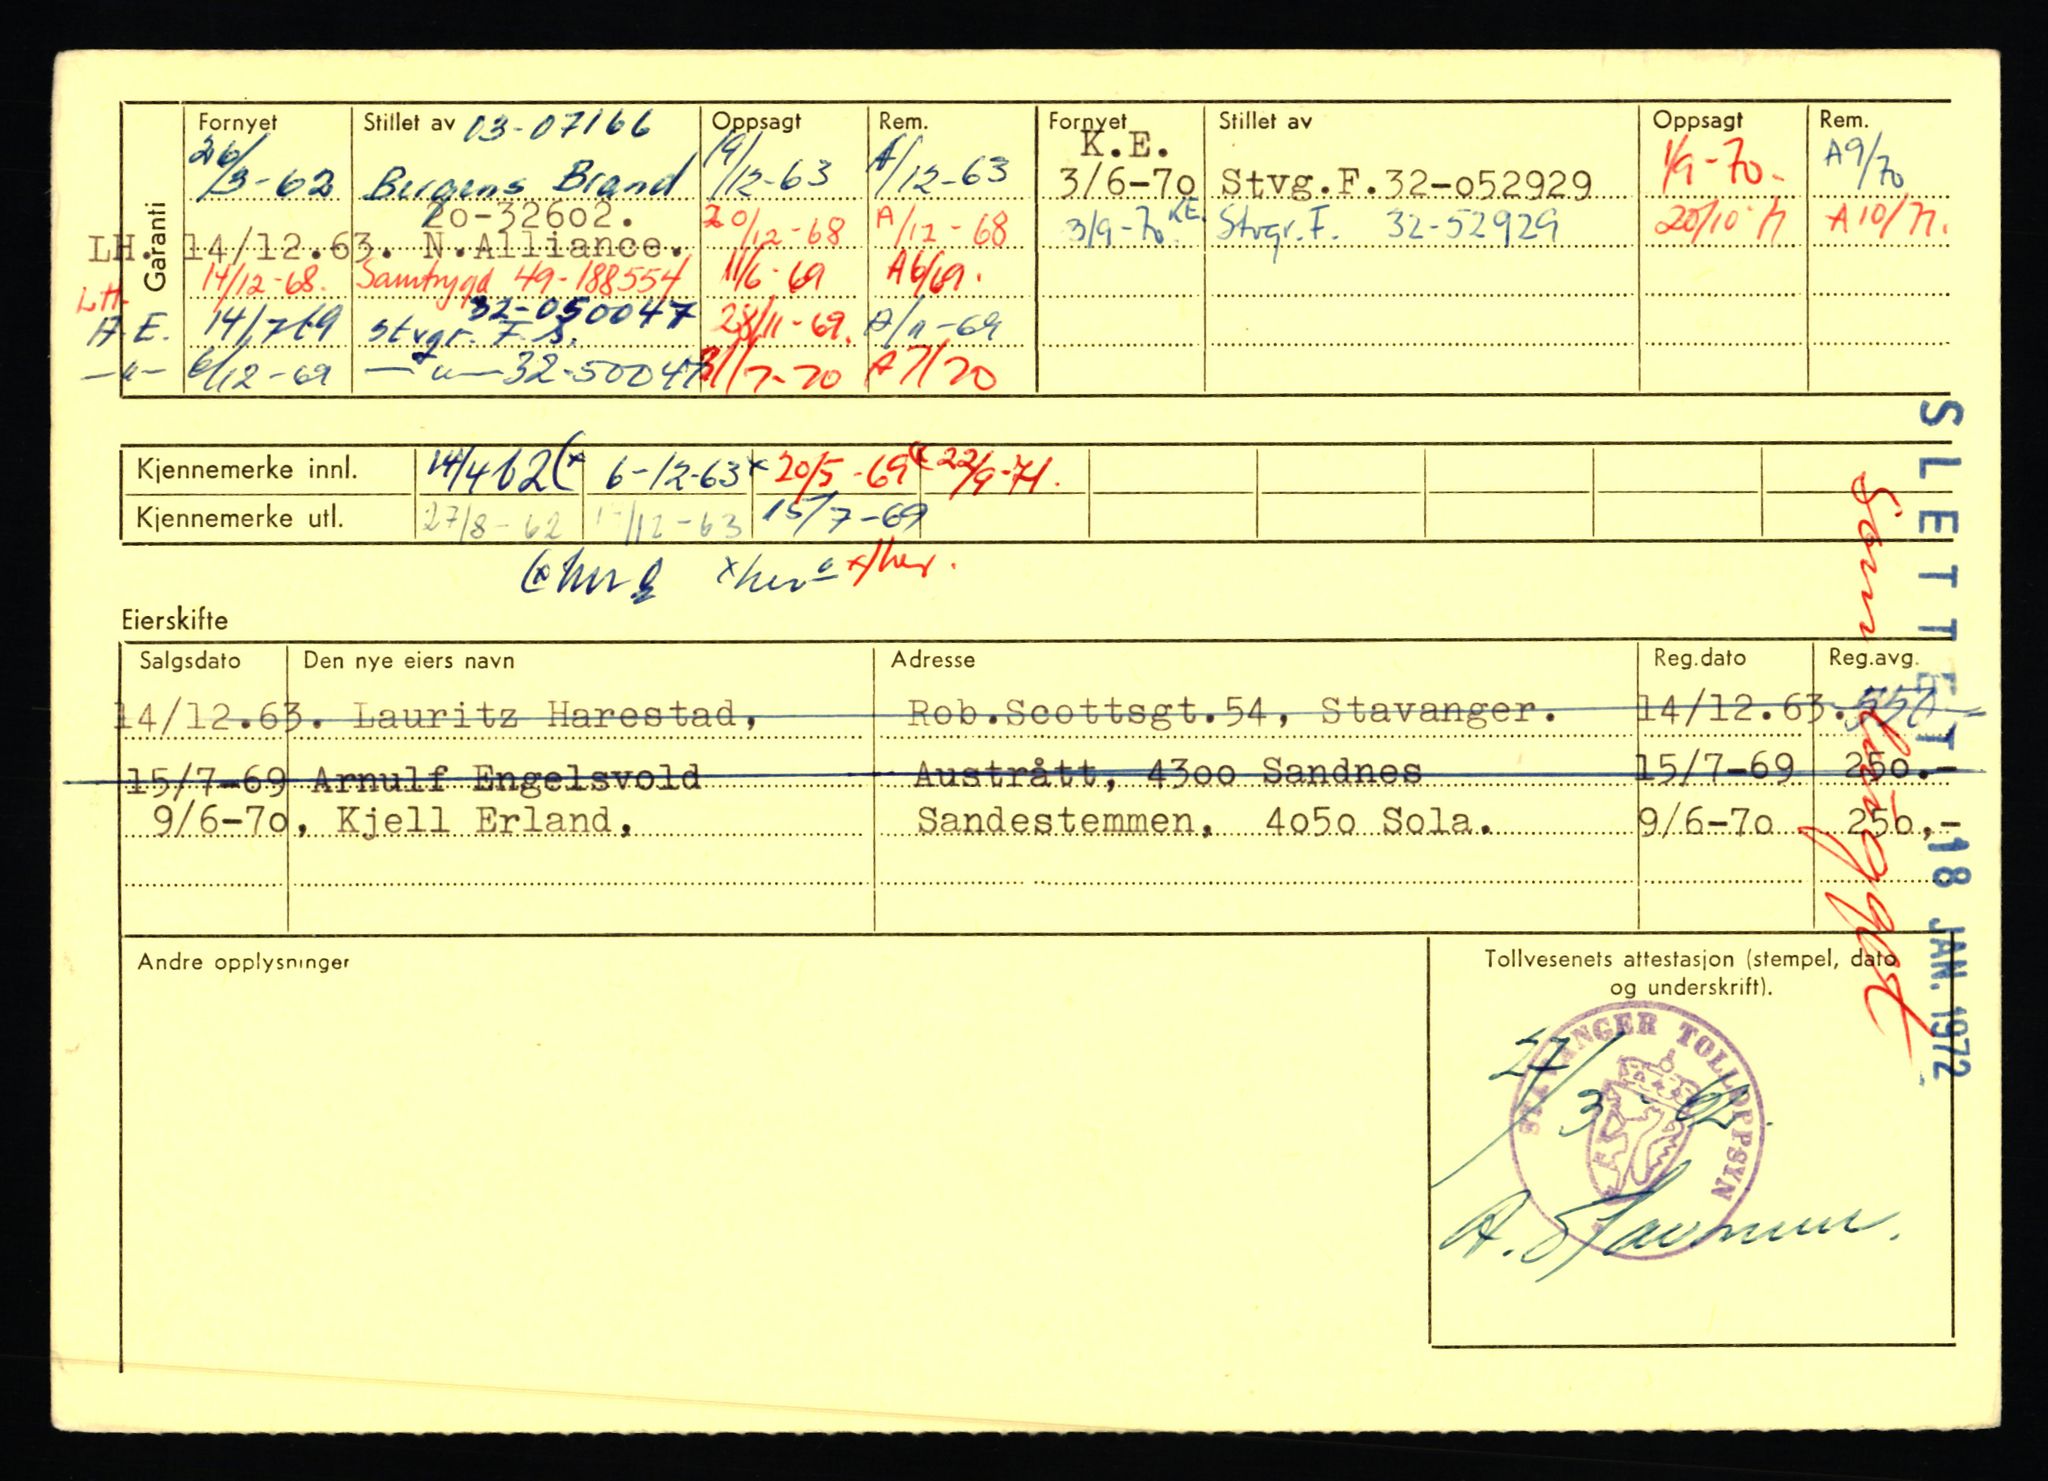 Garanti
Fornyet Stillet av 03-07166 Oppsagt Rem. Fornyet Stillet av Oppsagt Rem.
26/3-62 Bergens Brand 19/12-63 A/12-63 K.E. 3/6-70 Stvg.F.32-052929 1/9-70. A9/70
20-32602.
LH. 14/12.63. N.Alliance. 20/12-68 A/12-68 3/9-70 KE. Stvgr.F. 32-52929 20/10-71 A10/71.
LH. 14/12-68. Samtrygd 49-188554 11/6-69 A6/69.
32-050047
A.E. 14/7-69 Stvgr. F.S. 28/11-69. A/11-69
—"— 6/12-69 —"— 32-50047 31/7-70 A7/70
Kjennemerke innl. 14/4 62 (x 6-12-63 x 20/5-69 (x 22/9-71.
Kjennemerke utl. 27/8-62 /12-63 15/7-69
(x her x her x/her.
Eierskifte
Salgsdato Den nye eiers navn Adresse Reg.dato Reg.avg.
14/12.63. Lauritz Harestad, Rob.Scottsgt.54, Stavanger. 14/12.63. 550
15/7-69 Arnulf Engelsvold Austrått, 4300 Sandnes 15/7-69 250.-
9/6-70, Kjell Erland, Sandestemmen, 4050 Sola. 9/6-70 250,-
SLETTET
18 JAN. 1972
Som
Andre opplysninger
Tollvesenets attestasjon (stempel, dato
og underskrift).
STAVANGER TOLLOPPSYN
27/3-62.
A.